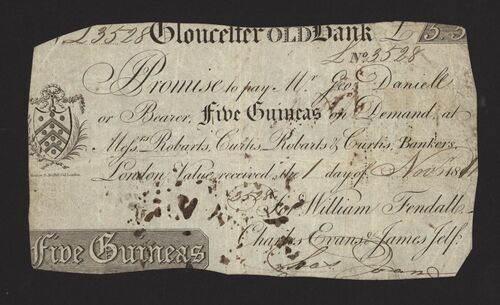 £ 3528 Gloucester OLD Bank £ 5..5
£ No. 3528
I Promise to pay Mr. Geo. Daniell
or Bearer, Five Guineas on Demand, at
Messrs. Robarts, Curtis, Robarts & Curtis, Bankers,
London Value received the 1 day of Novr. 181
3528
For William Fendall,
Charles Evans & James Jelf.
Five Guineas